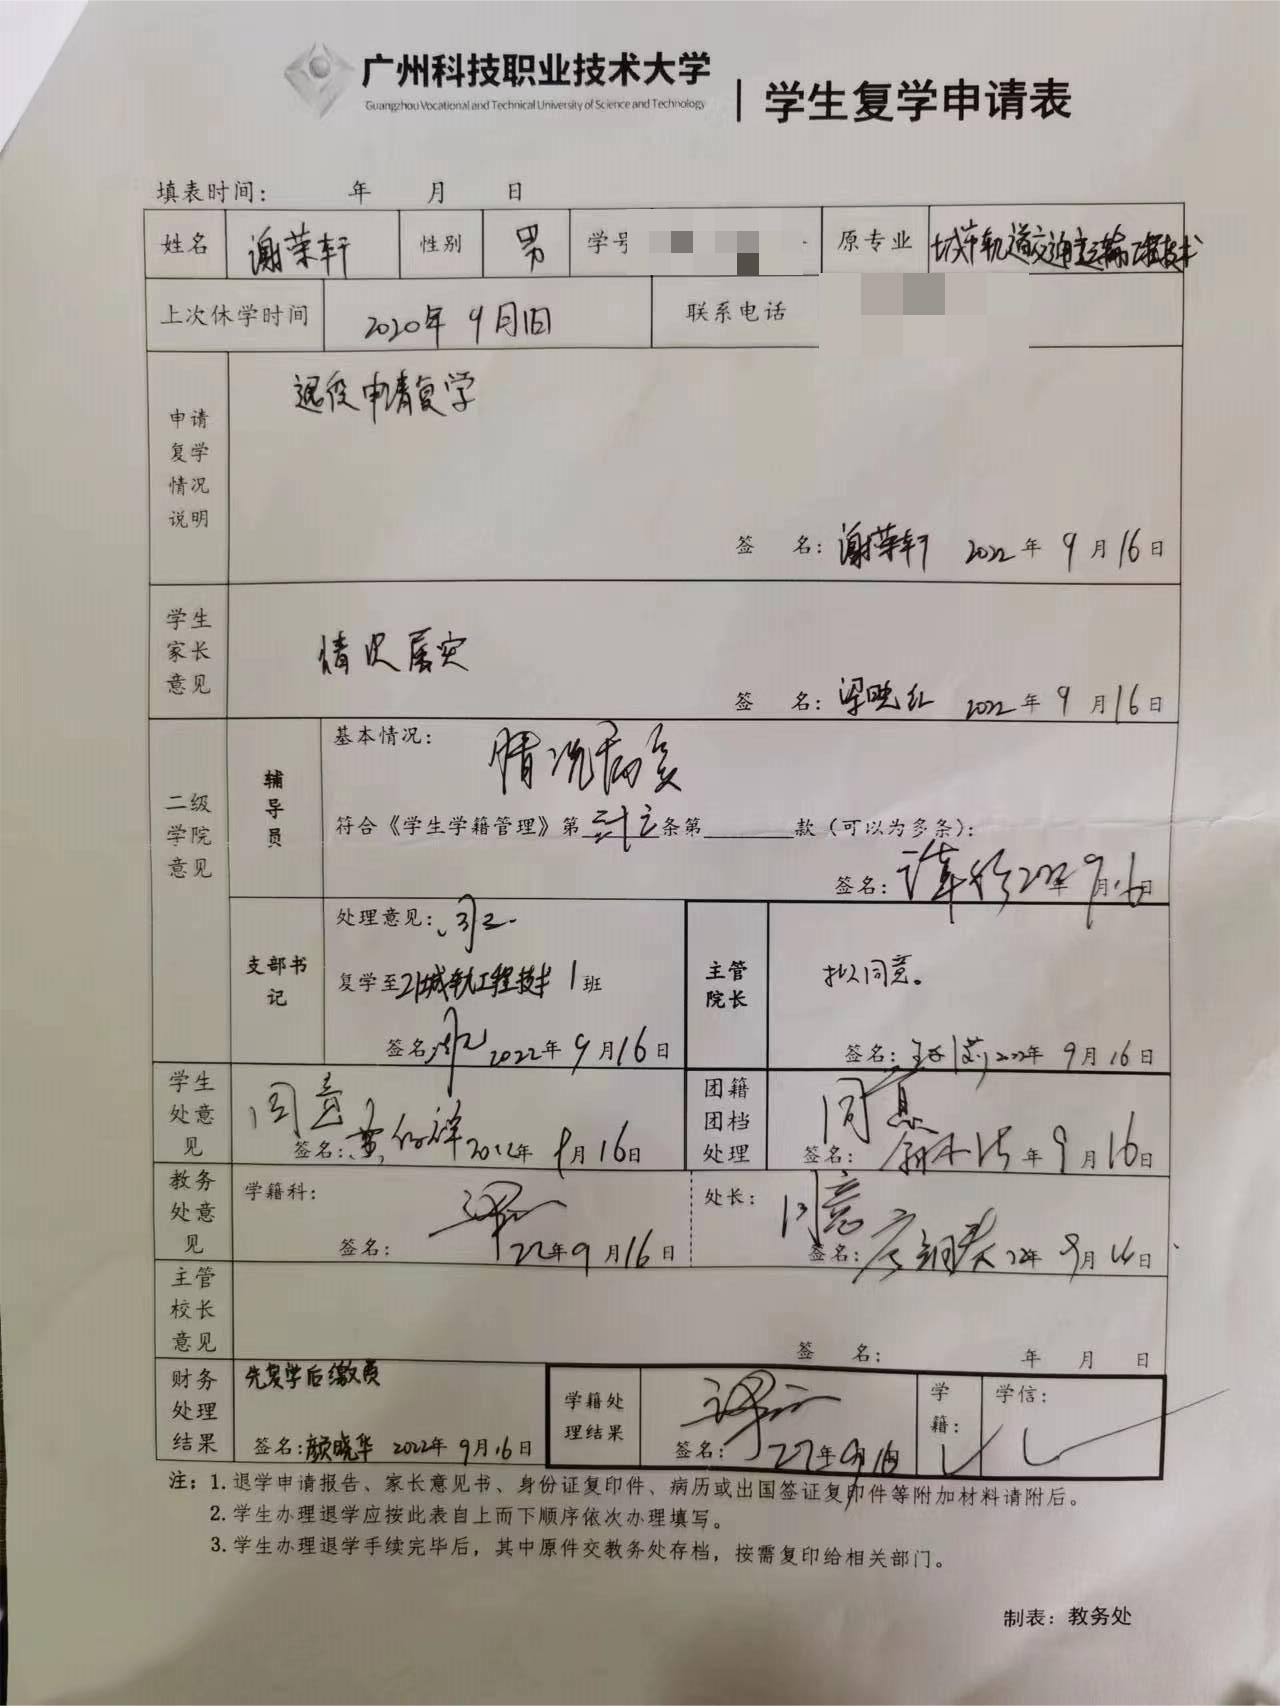 广州科技职业技术大学
Guangzhou Vocational and Technical University of Science and Technology
学生复学申请表
填表时间： 年 月 日
姓名 谢荣轩 性别 男 学号 原专业 城市轨道交通运输工程技术
上次休学时间 2020年9月1日 联系电话
申请复学情况说明 退役申请复学
签 名：谢荣轩 2022年9月16日
学生家长意见 情况属实
签 名：梁晓红 2022年9月16日
二级学院意见 辅导员 基本情况：情况属实
符合《学生学籍管理》第 条第 款（可以为多条）：
签名： 2022年9月16日
支部书记 处理意见：
复学至21城轨工程技术1班
签名 2022年9月16日
主管院长 拟同意。
签名： 2022年9月16日
学生处意见 同意
签名： 2022年9月16日
团籍团档处理 同意
签名： 年9月16日
教务处意见 学籍科：
签名： 22年9月16日
处长： 同意
签名： 22年9月16日
主管校长意见
签 名： 年 月 日
财务处理结果 先复学后缴费
签名：颜晓华 2022年9月16日
学籍处理结果 签名： 22年9月16日
学籍： 学信：
注：1.退学申请报告、家长意见书、身份证复印件、病历或出国签证复印件等附加材料请附后。
2.学生办理退学应按此表自上而下顺序依次办理填写。
3.学生办理退学手续完毕后，其中原件交教务处存档，按需复印给相关部门。
制表：教务处